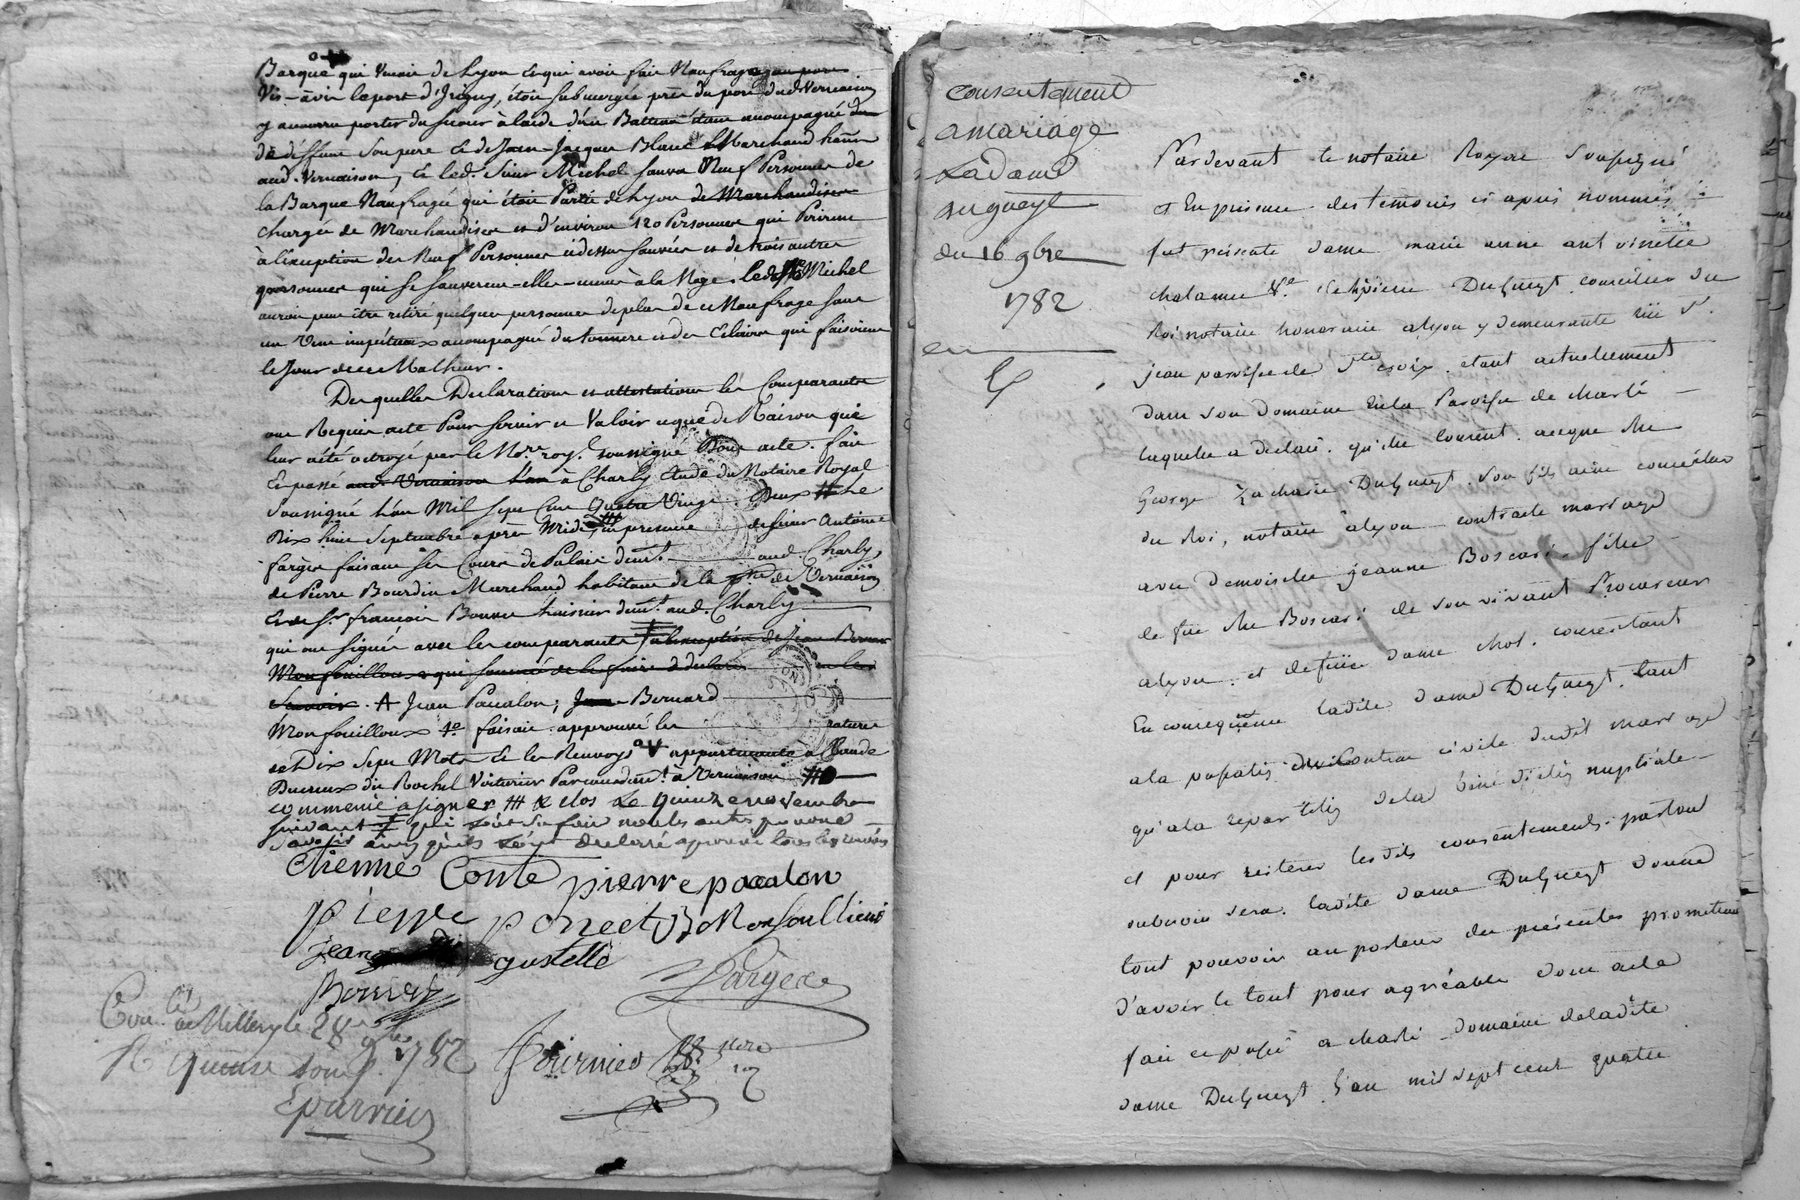 Barque qui venoit de Lyon et qui avoit fait Naufrage au port
vis-àvis le port d'Irigny, étoit submergée près du port dud. Vernaison
y accouru porter du secour à laide d'un Batteau étant accompagné
de déffunt son pere et de Jean-Jacques Blanc Marchand
aud. Vernaison, et led. Sieur Michel sauva Neuf Personnes de
la Barque Naufragée qui étoit Partie de Lyon de Marchandises
chargée de Marchandises et d'environ 120 Personnes qui Périrent
à l'exeption des Neuf Personnes cidessus sauvées et de trois autres
personnes qui se sauverent-elles-meme à la Nage. led. Sr Michel
auroit peut être retiré quelques personnes de plus de ce Naufrage sans
un Vent impétueux accompagné du tonnere et des Eclairs qui faisoient
le Jour de ce Malheur.
Desquelles Declarations et attestations les Comparants
ont Requis acte Pour servir et Valoir ce que de Raison qui
leur a été octroyé par le Nore. roy. soussigné Dont acte. fait
Et passé aud. Vernaison à Charly Etude du Notaire Royal
soussigné L'an Mil sept Cent Quatre Vingt Deux Le
Dix huit Septembre après Midi, en présence de sieur Antoine
fargés faisant les Cours de Palais demt. aud. Charly,
de Pierre Bourdin Marchand habitant de la pse de Vernaison
Et de Sr. francois Bonne huissier demt. aud. Charly
qui ont signés avec les comparants à l'exeption de Jean Bernard
Monfouilloux qui sommé de le faire a declaré ne les
scavoir. A Jean Pacalon, Bernard
Monfouilloux fo. faisait approuvé les rature
de Dix Sept Mots et les Renvoys appartenants à Claude
Ducreux du Rochel Voiturier Par eau demt. à Vernaison
commencé a signer et clos Le quinze novembre
suivant qui soit du foir non les autres pour ne
savoir ainsy quils déclarré aprouvé tous les renvois
Etienne Conte pierre pacalon
pierre poncet B Monfoullioux
jean gustelle
Bonnet fargere
Con.lé a Millery le 28 9bre 1782
R. quinse sous
Eparvier
fournier nore roy

consentement
a mariage
Ladame
dugueyt
du 16 9bre
1782
Pardevant le notaire Royal soussigné
et En présence des temoins ci après nommés
fut présente dame marie anne antoinette
chalamel Ve. de Sr pierre Dugueyt conseiller du
Roi notaire honoraire alyon y demeurante rüe St.
jean paroisse de Ste croix. etant actuellement
dans son domaine En la Paroisse de charli
laquelle a declaré qu'elle consent. aceque Me
George Zacharie Dugueyt son fils ainé conseiller
du Roi, notaire alyon contracte mariage
avec demoiselle jeanne Boscari fille
de feu Me Boscari de son vivant Procureur
alyon. et defeüe dame chol. consentant
En conséquence ladite dame Dugueyt tant
ala passation du Contrat civile dudit mariage
qu'ala repartition dela béné diction nuptiale
et pour reiterer lesdits consentements partout
oubesoin sera. ladite dame Dugueyt donne
tout pouvoir auporteur des présentes promettant
d'avoir le tout pour agréable dont acte
fait et passé a charli domaine deladite
dame Dugueyt L'an mil sept cent quatre